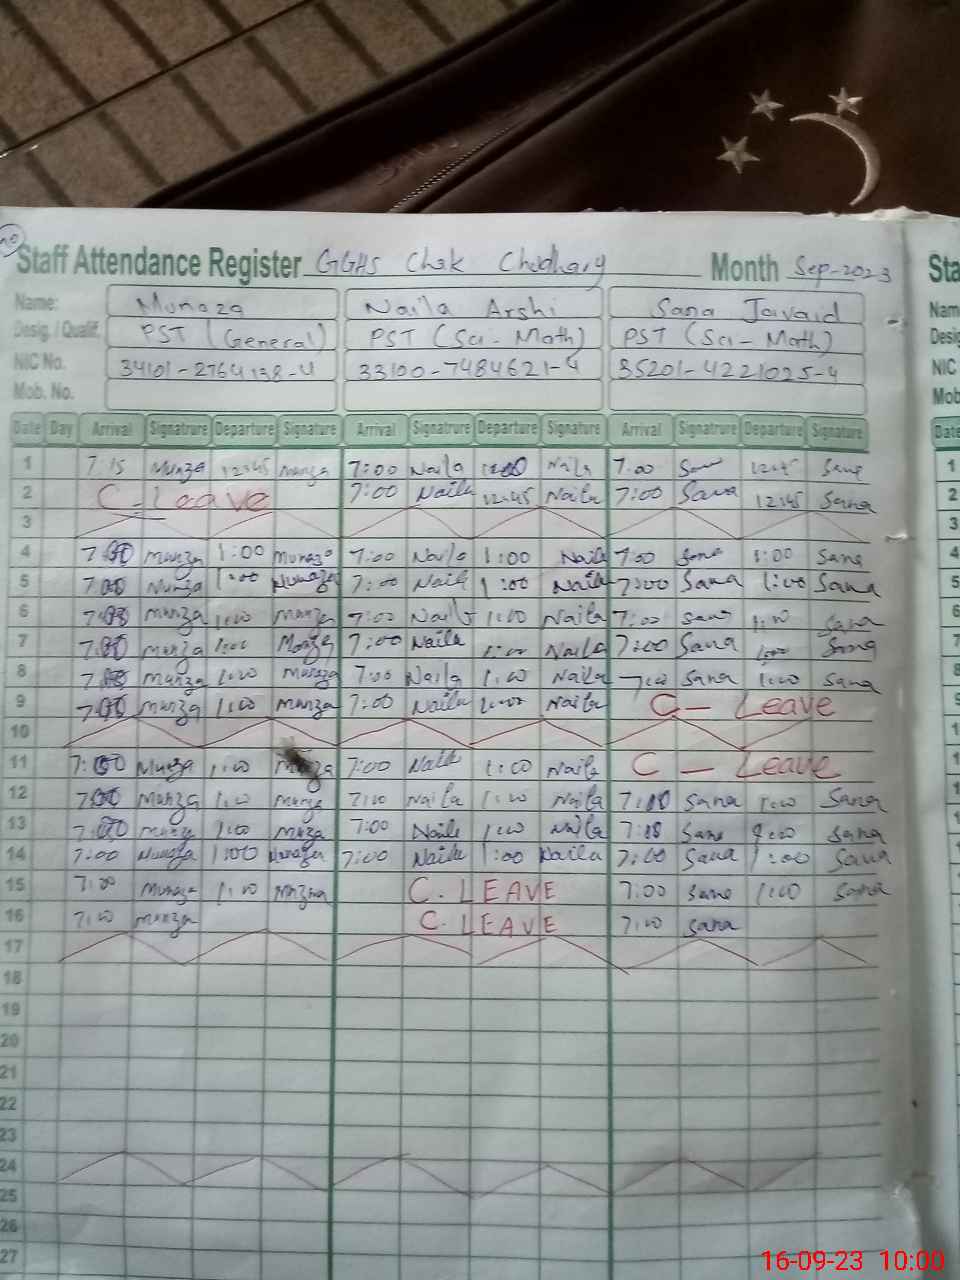 Staff Attendance Register GGHS Chak Chodhary Month Sep-2023 Sta
Name: Munaza Naila Arshi Sana Javaid Nam
Desig. / Qualif. PST (General) PST (Sci-Math) PST (Sci-Math) Desig
NIC No. 33100-7484621-4 35201-4221025-4 NIC
Mob. No. Mob
Date Day Arrival Signatrure Departure Signature Arrival Signatrure Departure Signature Arrival Signatrure Departure Signature Date
1 7:15 Munza 12:45 Munza 7:00 Naila Naila 7:00 Sana 12:45 Sana 1
2 C-Leave 7:00 Naila 12:45 Naila 7:00 Sana 12:45 Sana 2
3 3
4 7:00 Munza 1:00 Munaza 7:00 Naila 1:00 Naila 7:00 Sana 1:00 Sana 4
5 7:00 Munza 1:00 Munaza 7:00 Naila 1:00 Naila 7:00 Sana 1:00 Sana 5
6 7:00 Munza 1:00 Munza 7:00 Naila 1:00 Naila 7:00 Sana 1:00 Sana 6
7 7:00 Munza 1:00 Munza 7:00 Naila 1:00 Naila 7:00 Sana 1:00 Sana 7
8 7:00 Munza 1:00 Munaza 7:00 Naila 1:00 Naila 7:00 Sana 1:00 Sana 8
9 7:00 Munza 1:00 Munza 7:00 Naila 1:00 Naila C- Leave 9
10 1
11 7:00 Munza 1:00 Munza 7:00 Naila 1:00 Naila C - Leave 1
12 7:00 Munza 1:00 Munza 7:00 Naila 1:00 Naila 7:00 Sana 1:00 Sana 1
13 7:00 Munza 1:00 Munza 7:00 Naila 1:00 Naila 7:00 Sana Sana 1
14 7:00 Munaza 1:00 Munaza 7:00 Naila 1:00 Naila 7:00 Sana 1:00 Sana 1
15 7:00 Munaza 1:00 C. LEAVE 7:00 Sana 1:00 Sana 1
16 7:00 Munza C. LEAVE 7:00 Sana 1
17 1
18
19
20
21
22
23
24
25
26
27
16-09-23 10:00